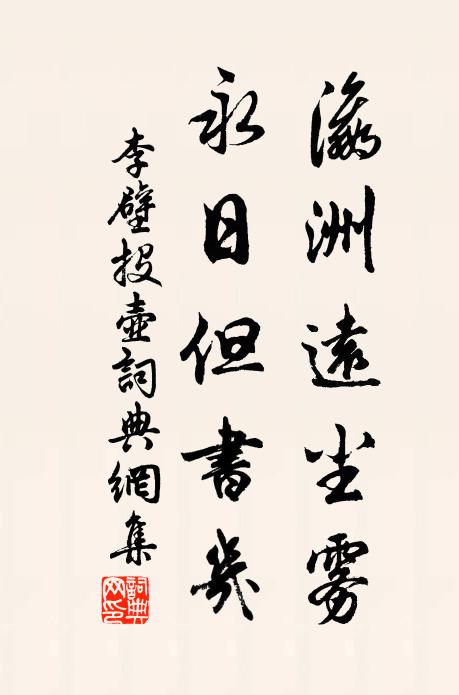 瀛洲遠尘雾
永日但書幾
李壁投壺詞典網集
詞典网印